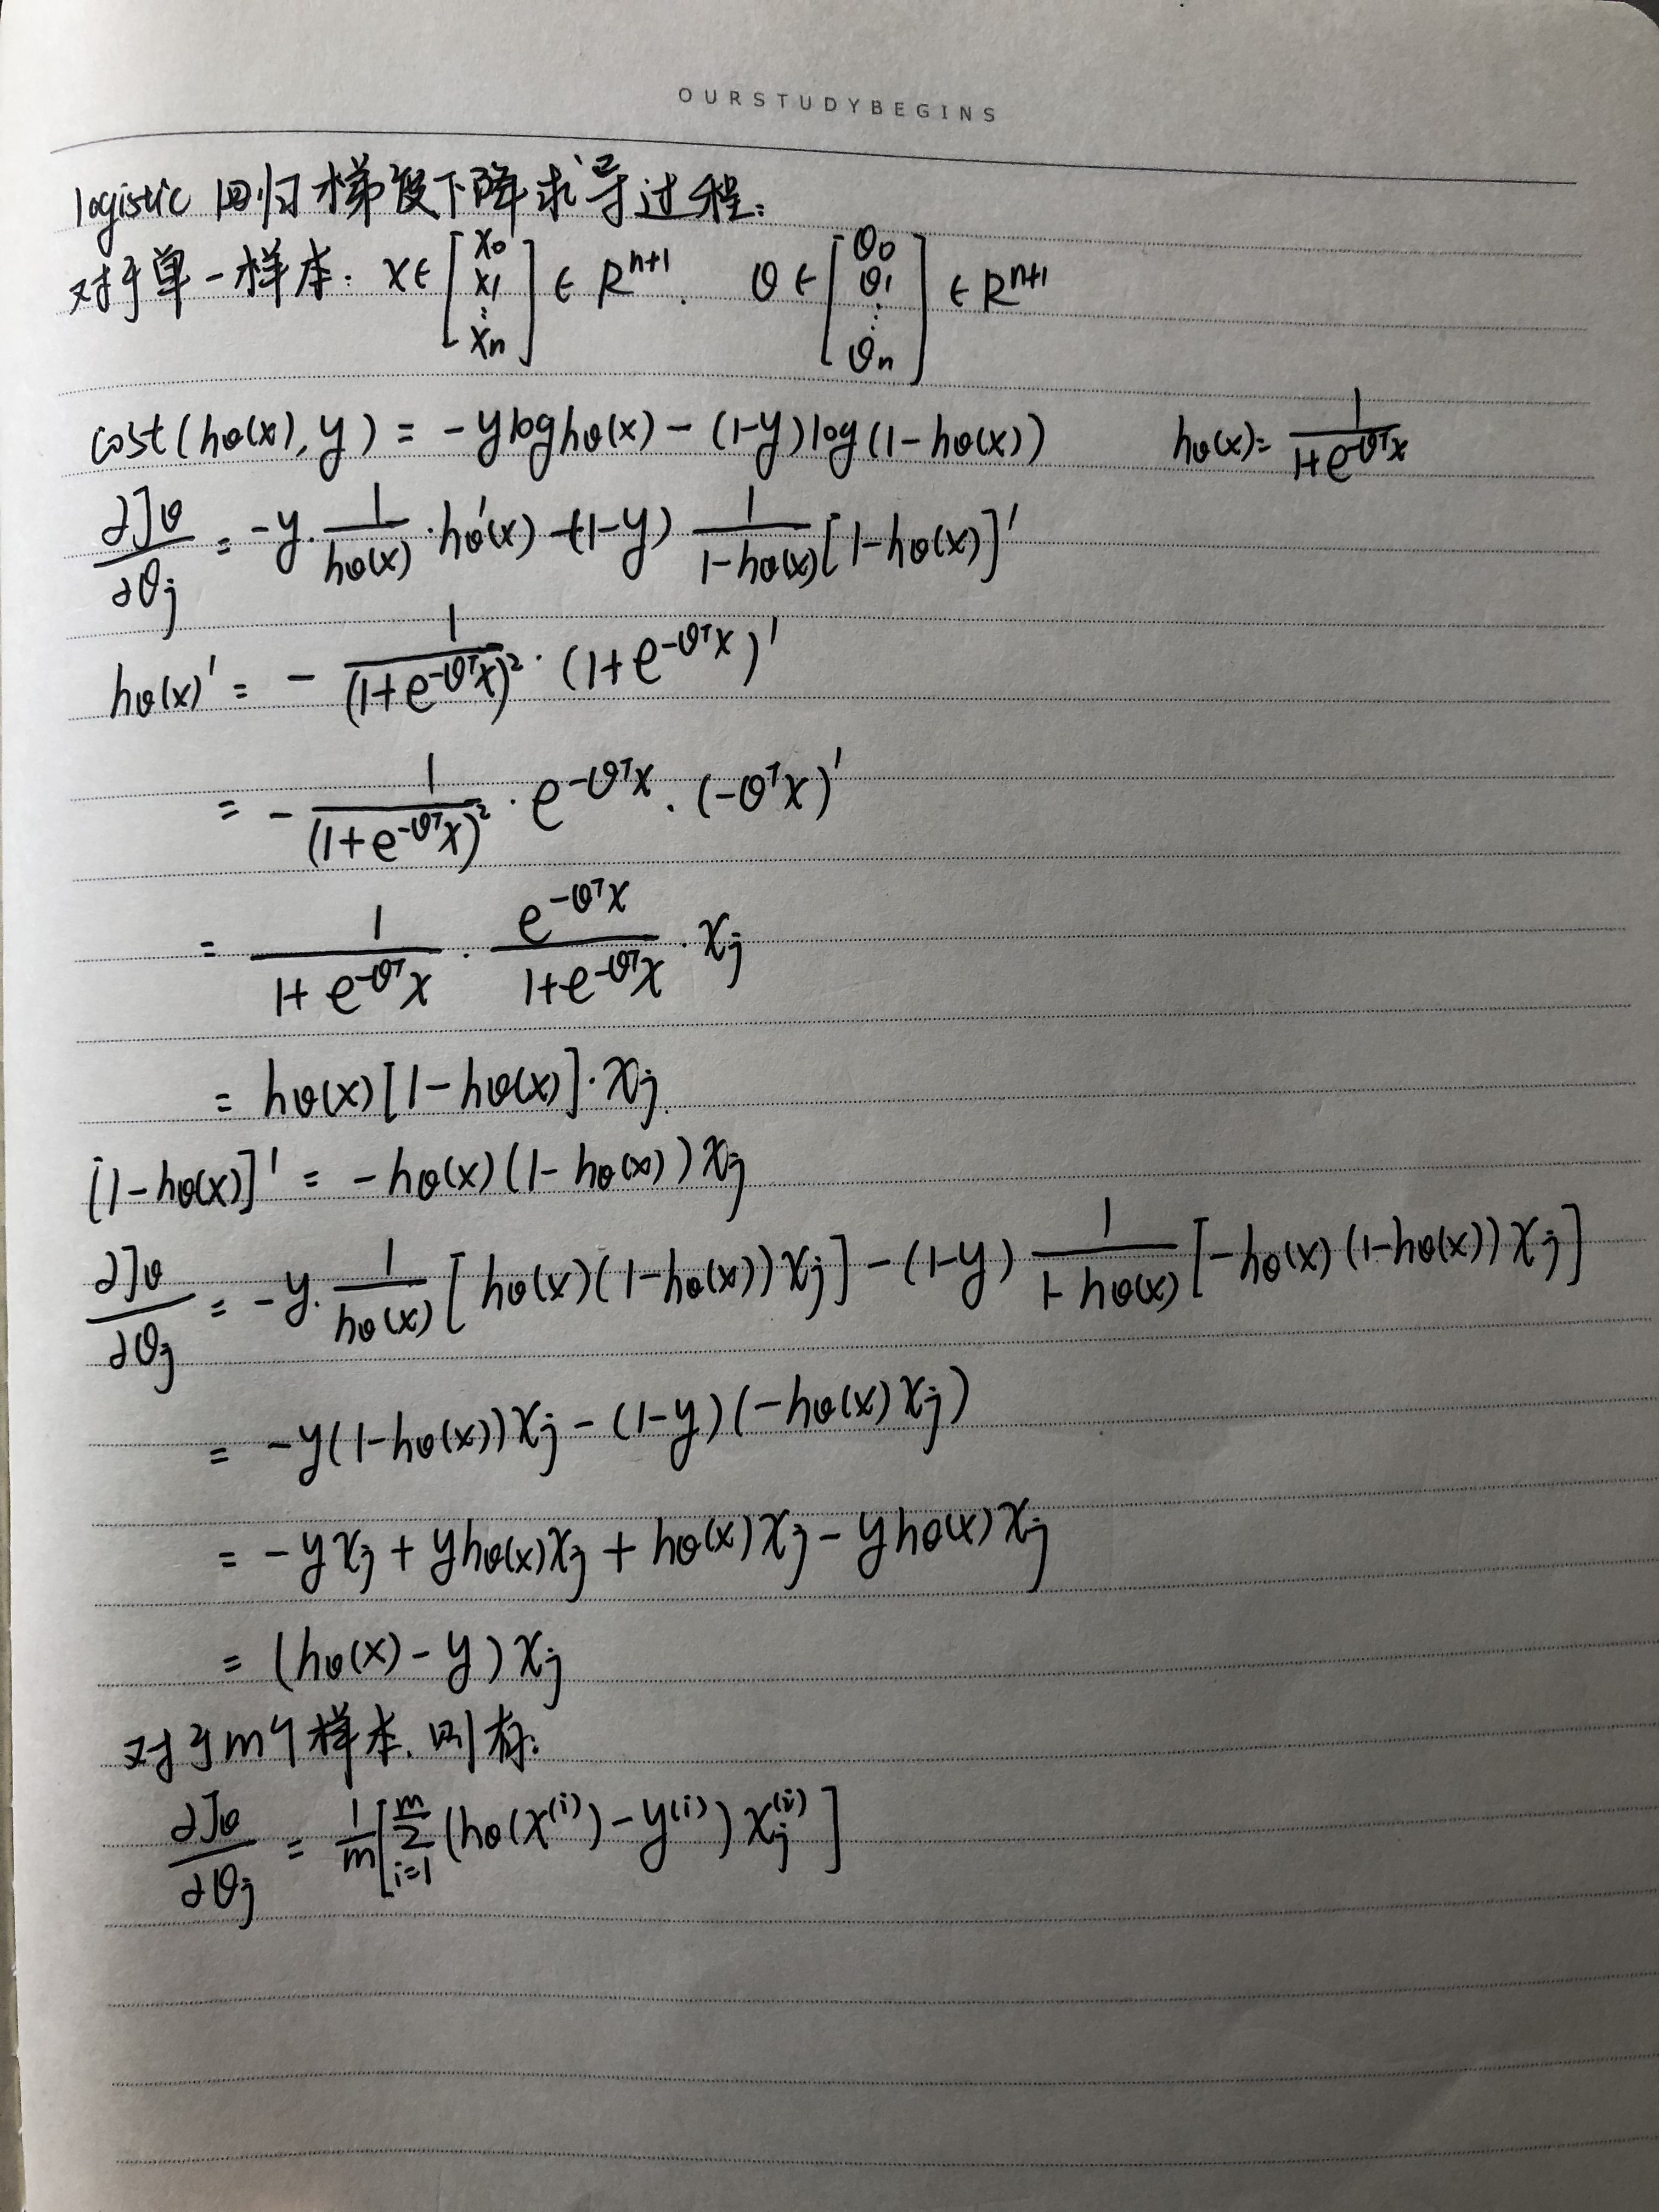 OURSTUDYBEGINS
logistic 回归梯度下降求导过程:
对于单一样本: x∈[x0 x1 ⋮ xn] ∈ R^{n+1}. θ∈[θ0 θ1 ⋮ θn] ∈ R^{n+1}
cost(hθ(x), y) = -y log hθ(x) - (1-y) log (1-hθ(x)) hθ(x) = 1/(1+e^{-θᵀx})
∂Jθ/∂θj = -y · 1/hθ(x) · hθ'(x) - (1-y) 1/(1-hθ(x)) [1-hθ(x)]'
hθ(x)' = - 1/(1+e^{-θᵀx})² · (1+e^{-θᵀx})'
= - 1/(1+e^{-θᵀx})² · e^{-θᵀx} · (-θᵀx)'
= 1/(1+e^{-θᵀx}) · e^{-θᵀx}/(1+e^{-θᵀx}) · xj
= hθ(x)[1-hθ(x)] · xj
[1-hθ(x)]' = -hθ(x)(1-hθ(x))xj
∂Jθ/∂θj = -y · 1/hθ(x) [hθ(x)(1-hθ(x))xj] - (1-y) 1/(1-hθ(x)) [-hθ(x)(1-hθ(x))xj]
= -y(1-hθ(x))xj - (1-y)(-hθ(x)xj)
= -yxj + yhθ(x)xj + hθ(x)xj - yhθ(x)xj
= (hθ(x) - y)xj
对于m个样本, 则有:
∂Jθ/∂θj = 1/m [∑_{i=1}^{m} (hθ(x^{(i)}) - y^{(i)}) xj^{(i)}]